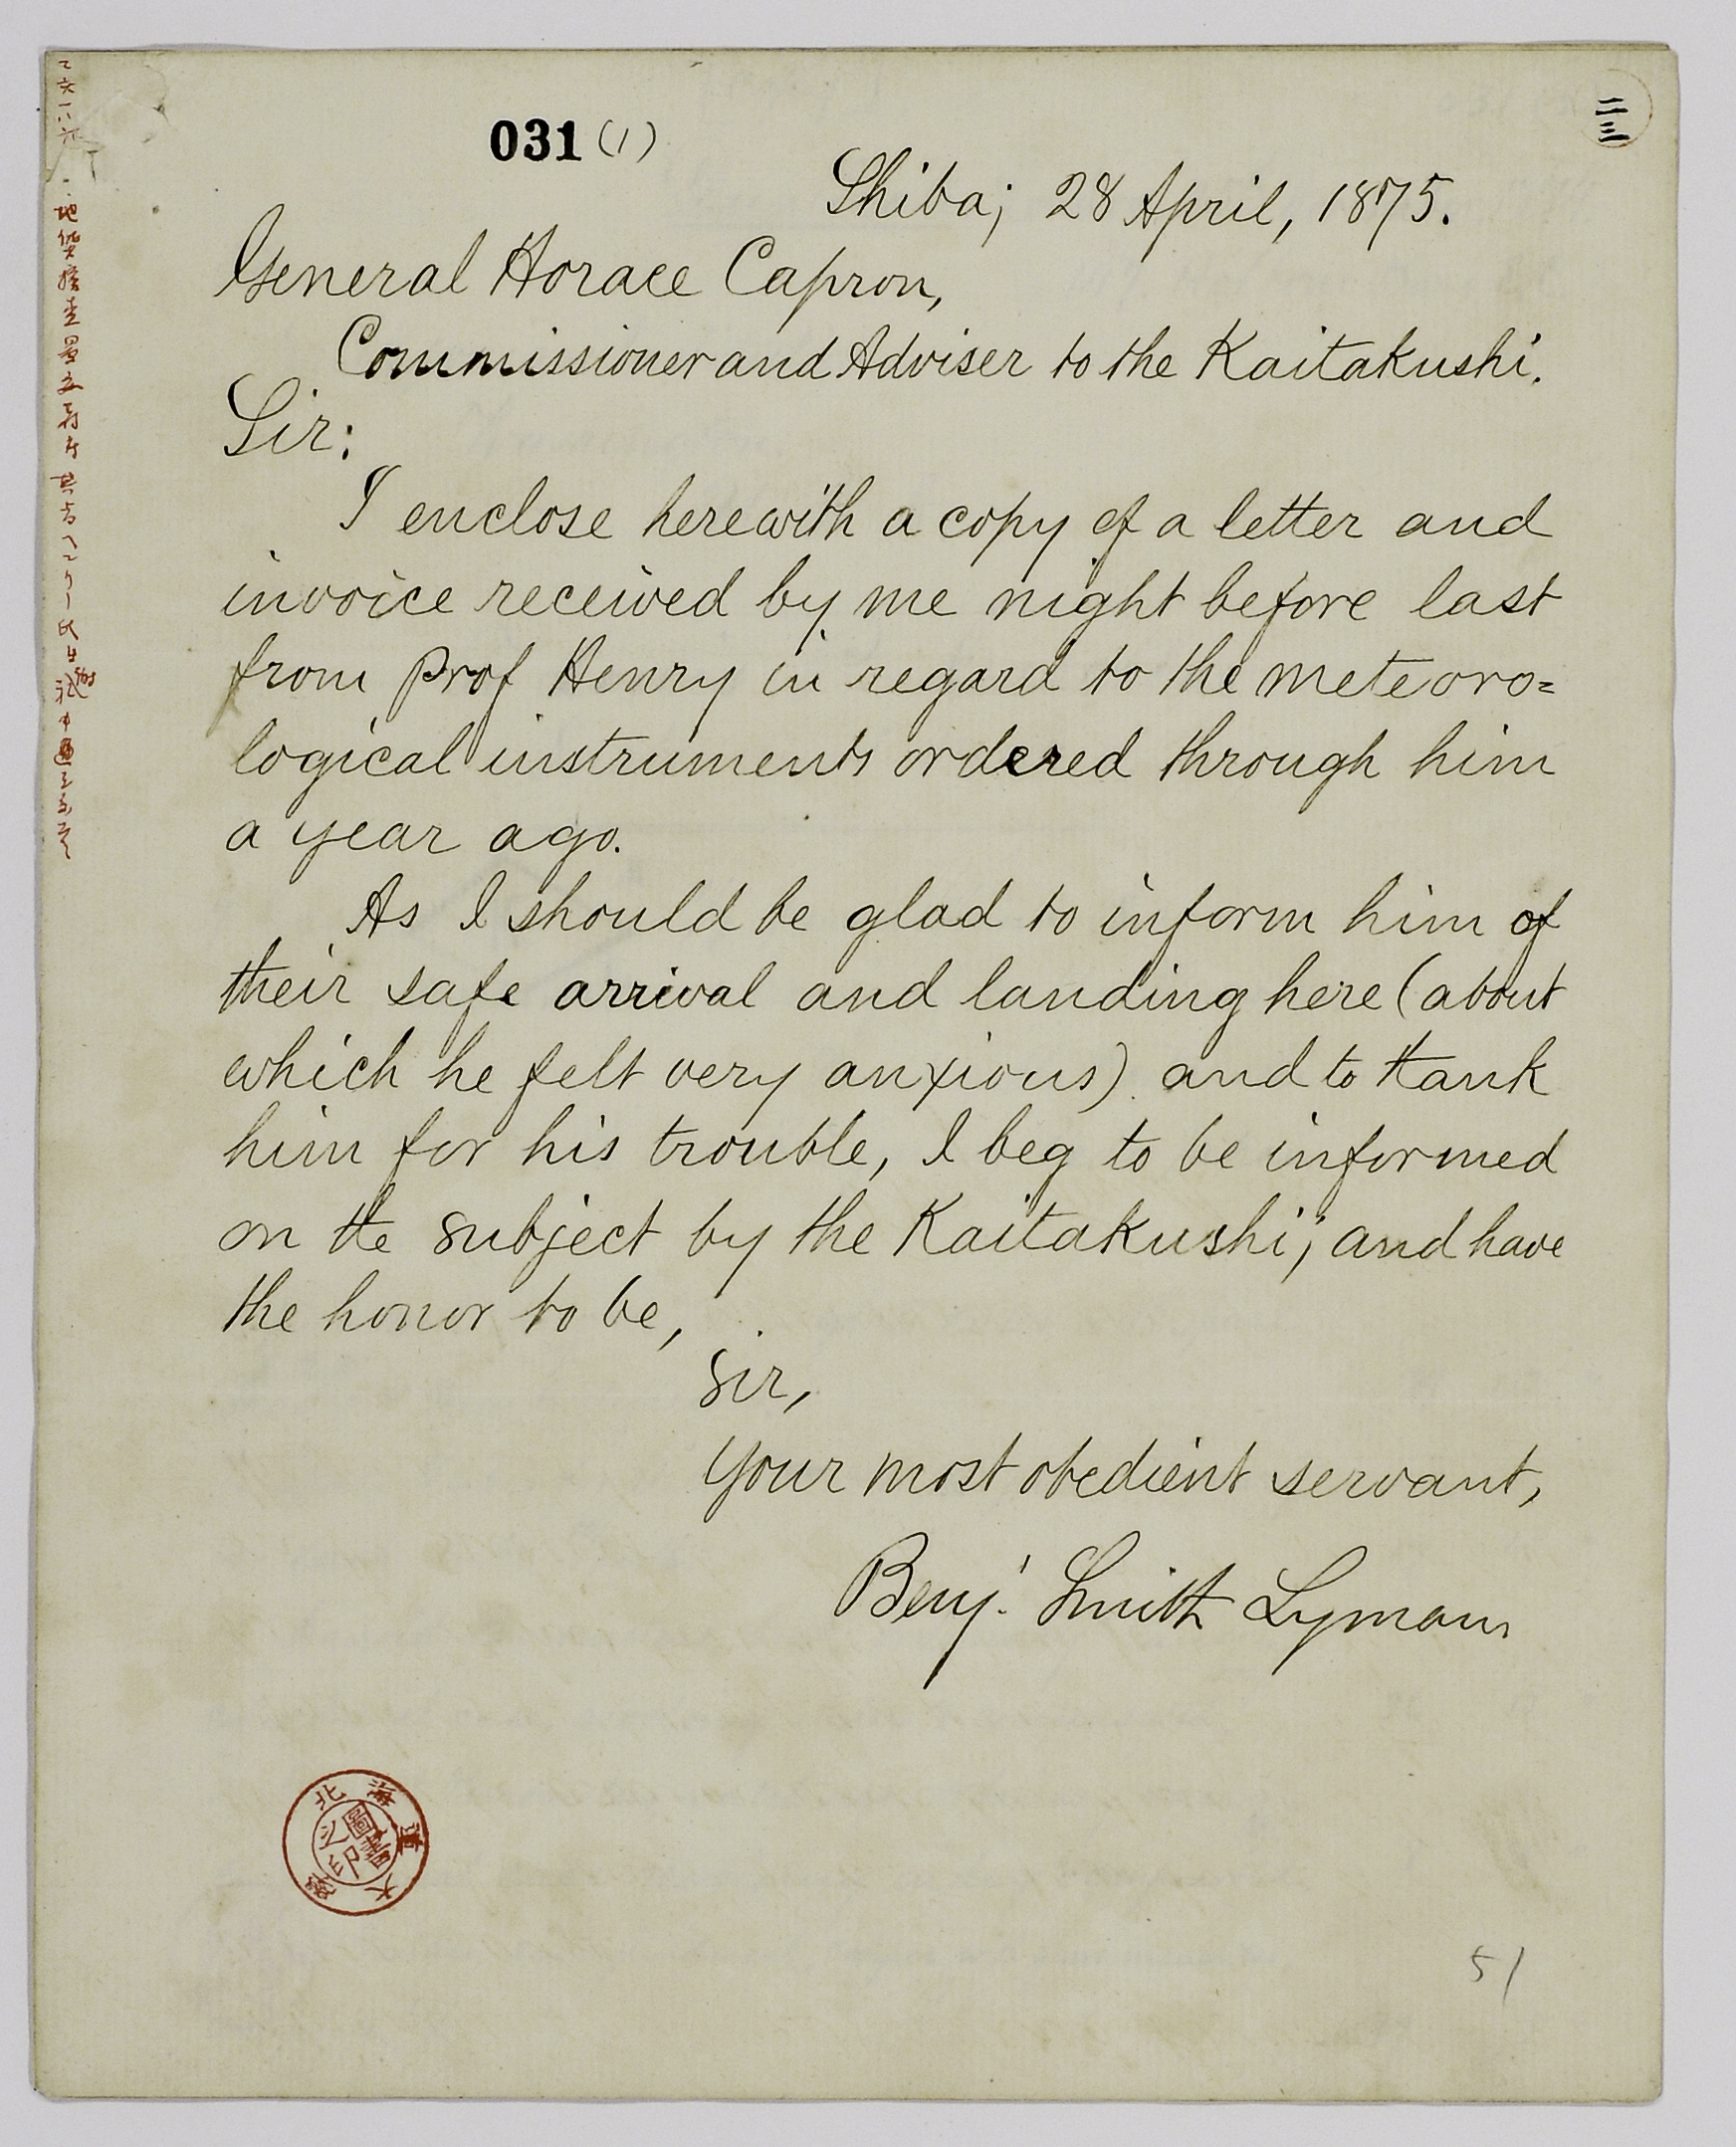 031 (1)
二三
Shiba; 28 April, 1875.
General Horace Capron,
Commissioner and Adviser to the Kaitakushi.
Sir:
I enclose herewith a copy of a letter and
invoice received by me night before last
from Prof Henry in regard to the meteoro=
logical instruments ordered through him
a year ago.
As I should be glad to inform him of
their safe arrival and landing here (about
which he felt very anxious) and to thank
him for his trouble, I beg to be informed
on the subject by the Kaitakushi; and have
the honor to be,
Sir,
Your most obedient servant,
Benj. Smith Lyman
北海道大學
圖書之印
51